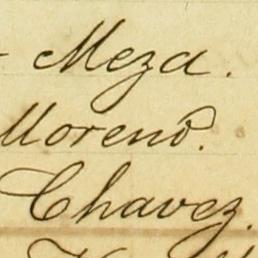 Meza.
Moreno.
Chavez.